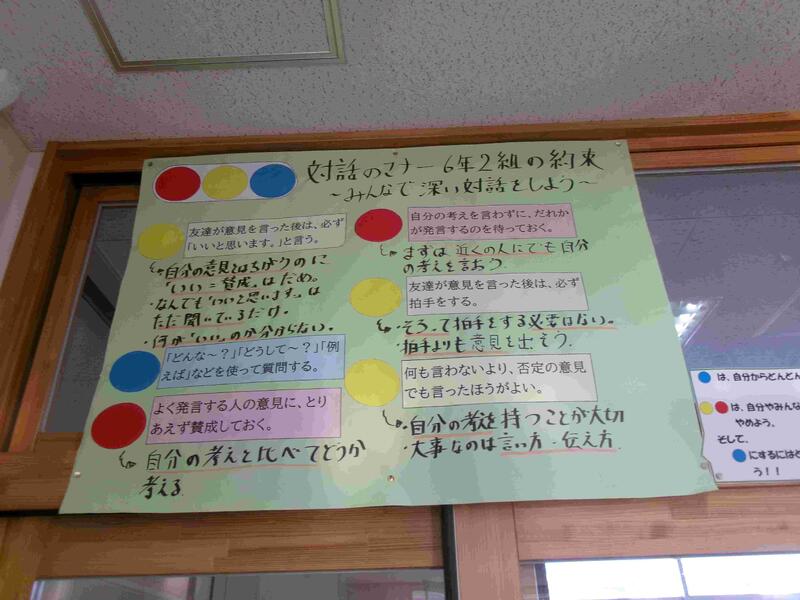 対話のマナー 6年2組の約束
～みんなで深い対話をしよう～
友達が意見を言った後は、必ず
「いいと思います。」と言う。
・自分の意見とはちがうのに
「いい＝賛成」はだめ。
・なんでも「いいと思います。」は
ただ聞いているだけ。
・何が「いい」のか分からない。
「どんな～？」「どうして～？」「例
えば」などを使って質問する。
よく発言する人の意見に、とり
あえず賛成しておく。
自分の考えと比べてどうか
考える
自分の考えを言わずに、だれか
が発言するのを待っておく。
まずは近くの人にでも自分
の考えを言おう。
友達が意見を言った後は、必ず
拍手をする。
・そろって拍手をする必要はない。
・拍手よりも意見を出そう。
何も言わないより、否定の意見
でも言ったほうがよい。
・自分の考えを持つことが大切
・大事なのは言い方・伝え方
は、自分からどんどん
は、自分やみんな
やめよう。
そして、
にするにはど
う！！